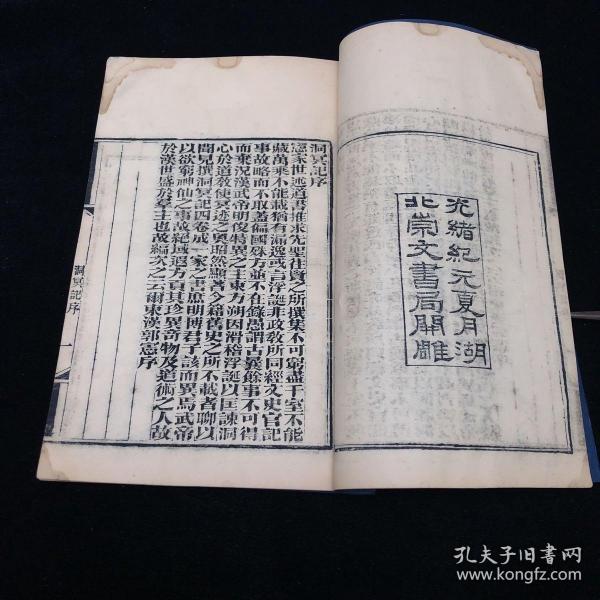 光緒紀元夏月湖
北崇文書局開雕
洞冥記序
憲家世述道書推求先聖往賢之所撰集不可窮盡千室不能
藏萬乘不能載猶有漏逸或言浮誕非政教所同經文史官記
事故略而不取蓋偏國殊方並不在錄愚謂古曩餘事不可得
而棄況漢武帝明俊特異之主東方朔因滑稽浮誕以匡諫洞
心於道教使冥迹之奧昭然顯著今籍舊史之所不載者聊以
聞見撰洞冥記四卷成一家之書庶明博君子該而異焉武帝
以欲窮神仙之事故絕域遐方貢其珍異奇物及道術之人故
於漢世盛於羣主也故編次之云爾東漢郭憲序
洞冥記序
一
孔夫子旧书网
www.kongfz.com